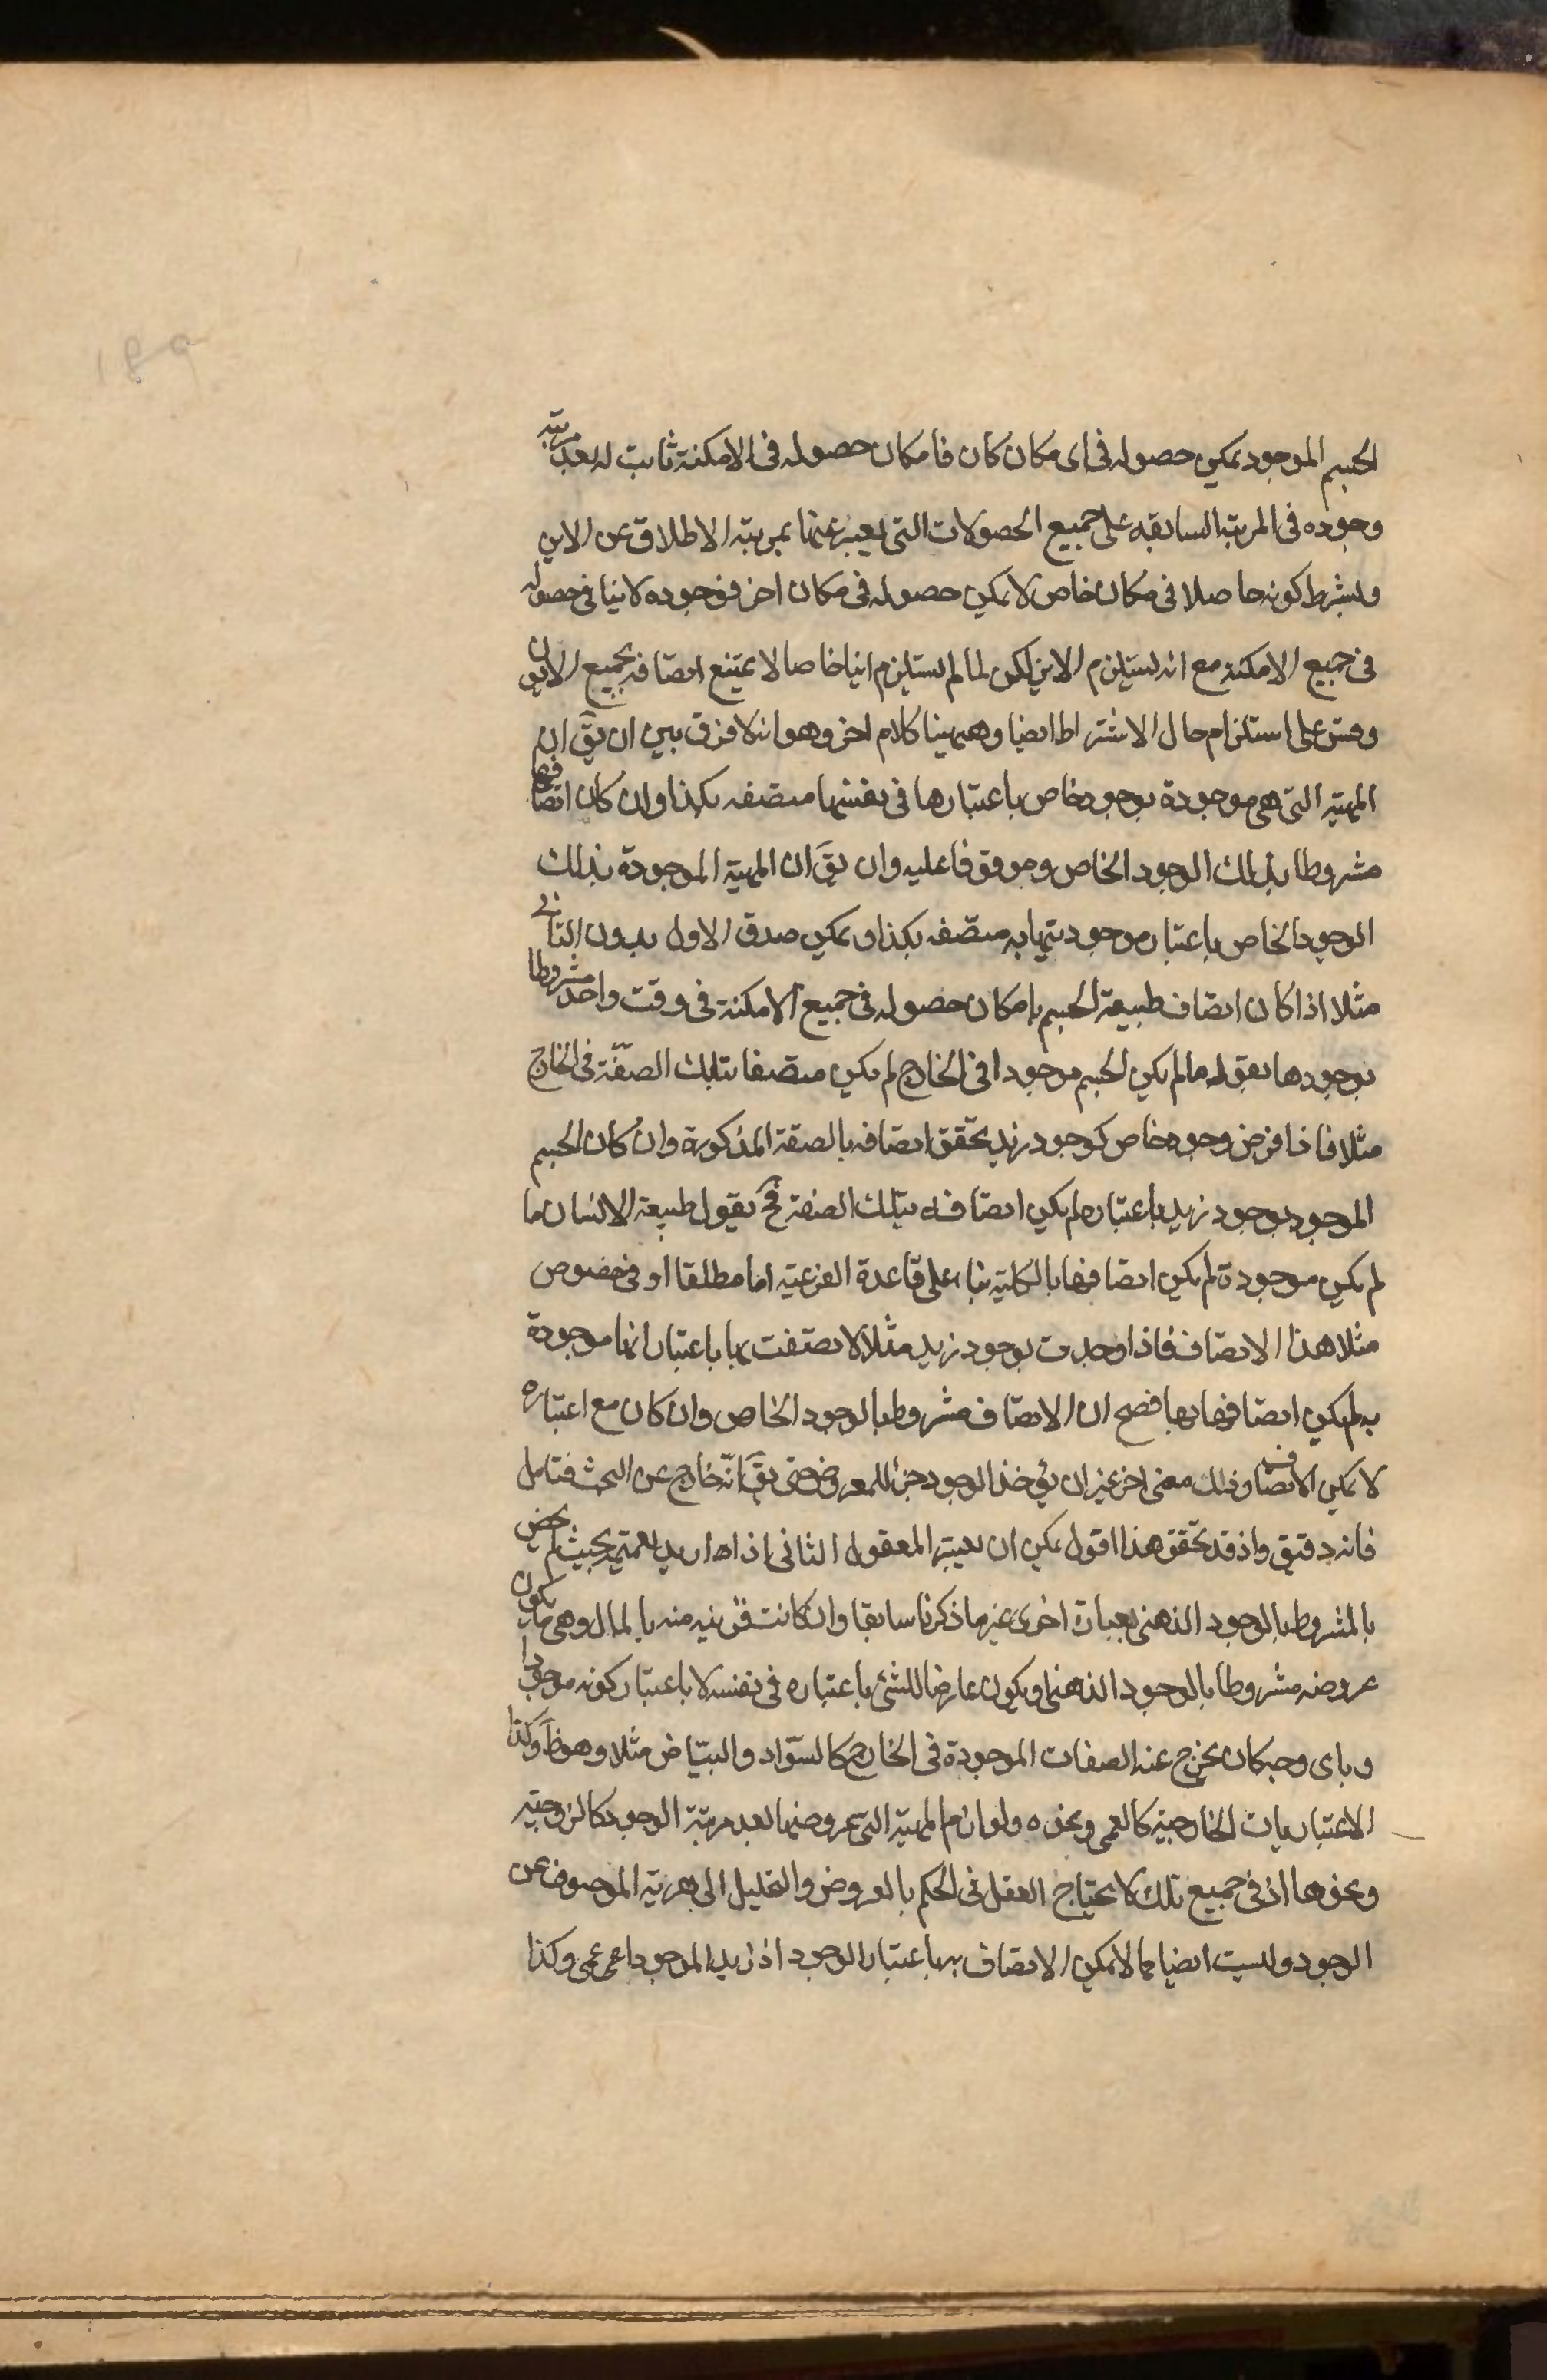 الجسم الموجود يمكن حصوله فى اى مكان كان فامكان حصوله فى الامكنة ثابت له بعد مرتبة
وجوده فى المرتبة السابقه على جميع الحصولات التى يعبر عنها بمرتبة الاطلاق عن الاين
وبشرط كونه حاصلا فى مكان خاص لا يمكن حصوله فى مكان اخر فوجوده لا ينافى حصوله
فى جميع الامكنة مع انه يستلزم الاين لكن لما لم يستلزم اينا خاصا لا يمتنع اتصافه بجميع الايون
وقس على استلزام حال الاشتراط ايضا وههنا كلام اخر وهو انه لا فرق بين ان يق ان
المهية التى هى موجودة بوجود خاص باعتبارها فى نفسها متصفه بكذا وان كان اتصافها
مشروطا بذلك الوجود الخاص وموقوفا عليه وان يق ان المهية الموجودة بذلك
الوجود الخاص باعتبار موجوديتها به متصفه بكذا ويمكن صدق الاول بدون الثانى
مثلا اذا كان اتصاف طبيعة الجسم بامكان حصوله فى جميع الامكنة فى وقت واحد مشروطا
بوجودها نقول ما لم يكن الجسم موجودا فى الخارج لم يكن متصفا بتلك الصفة فى الخارج
مثلا فاذا فرض وجود خاص كوجود زيد تحقق اتصافه بالصفة المذكورة وان كان الجسم
الموجود بوجود زيد باعتباره لم يكن اتصافه بتلك الصفة فح نقول طبيعة الانسان ما
لم يكن موجودة لم يكن اتصافها بالكلية بناء على قاعدة الفرعية اما مطلقا او فى خصوص
مثلا هذا الاتصاف فاذا وجدت بوجود زيد مثلا لا تصفت بها باعتبار انها موجودة
به لم يكن اتصافها بها فصح ان الاتصاف مشروط بالوجود الخاص وان كان مع اعتباره
لا يمكن الاتصاف وذلك معنى اخر غير ان يؤخذ الوجود جزء للمعروض حتى يق انه خارج عن البحث فتامل
فانه دقيق واذ قد تحقق هذا اقول يمكن ان يعتبر المعقول الثانى اذا اريد تعميمه بحيث لم يخص
بالمشروط بالوجود الذهنى بعبارة اخرى غير ما ذكرنا سابقا وان كانت قريبه منه بالمال وهى ما يكون
عروضه مشروطا بالوجود الذهنى او يكون عارضا للشئ باعتباره فى نفسه لا باعتبار كونه موجودا
وباى وجه كان يخرج عنه الصفات الموجودة فى الخارج كالسواد والبياض مثلا وهو ظ وكذا
الاعتباريات الخارجية كالعمى ونحوه ولوازم المهية التى عروضها بعد مرتبة الوجود كالزوجية
ونحوها اذ فى جميع تلك لا يحتاج العقل فى الحكم بالعروض والتحليل الى تعرية الموصوف عن
الوجود وليست ايضا مما لا يمكن الاتصاف به باعتبار الوجود اذ زيد الموجود اعمى وكذا